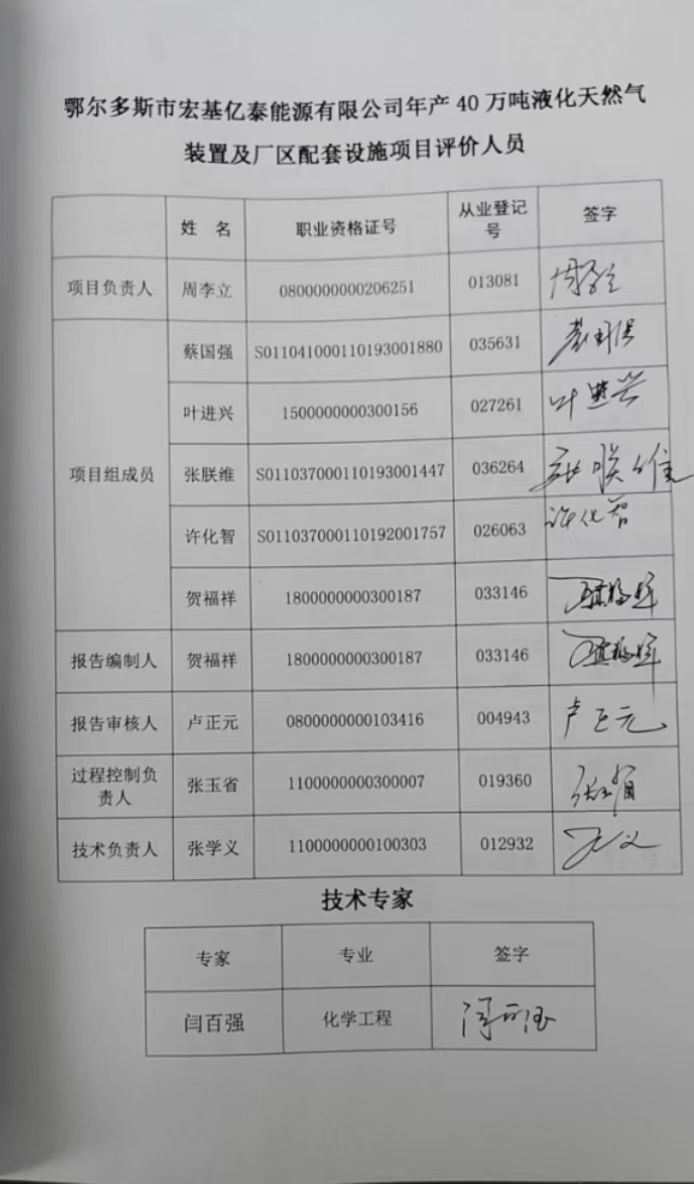 鄂尔多斯市宏基亿泰能源有限公司年产 40 万吨液化天然气
装置及厂区配套设施项目评价人员
姓 名 职业资格证号 从业登记号 签字
项目负责人 周李立 0800000000206251 013081 周李立
项目组成员 蔡国强 S011041000110193001880 035631 蔡国强
叶进兴 1500000000300156 027261 叶进兴
张朕维 S011037000110193001447 036264 张朕维
许化智 S011037000110192001757 026063 许化智
贺福祥 1800000000300187 033146
报告编制人 贺福祥 1800000000300187 033146
报告审核人 卢正元 0800000000103416 004943 卢正元
过程控制负责人 张玉省 1100000000300007 019360 张玉省
技术负责人 张学义 1100000000100303 012932
技术专家
专家 专业 签字
闫百强 化学工程 闫百强